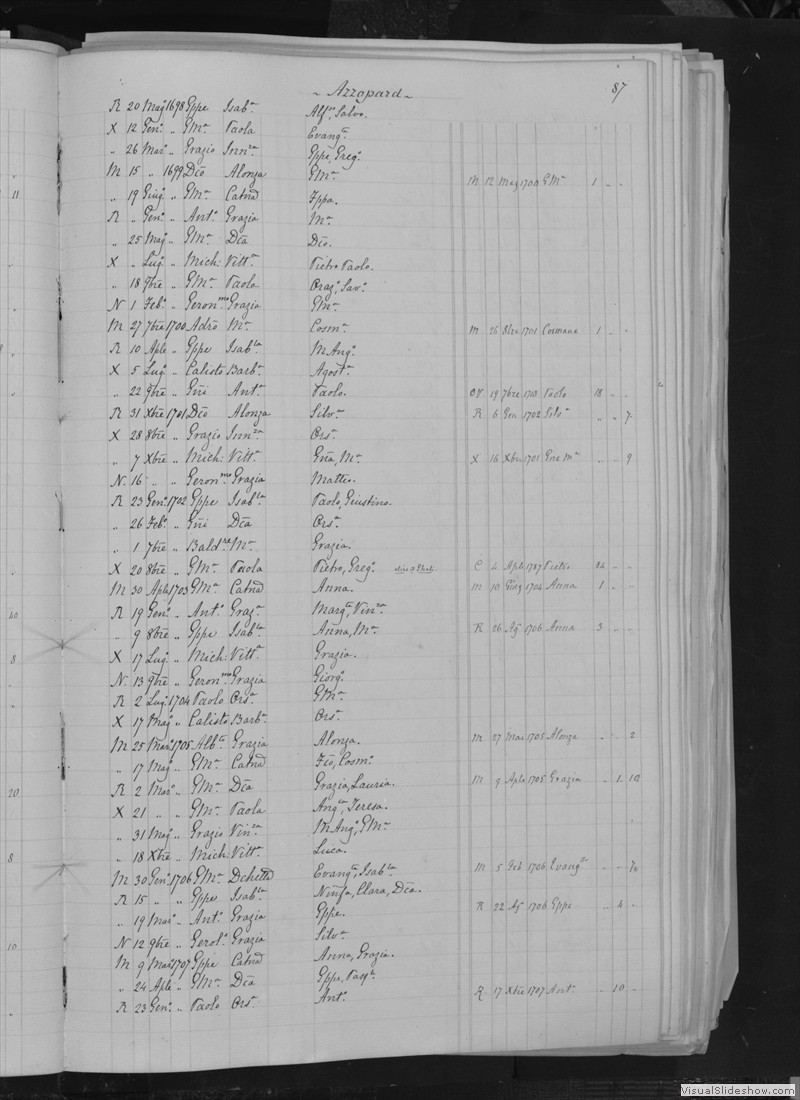 Azzopard 87
R 20 Mag. 1698 Gppe Isab.a Alf.o, Salvo.
X 12 Gen.o „ GM.a Paola Evang.a
„ 26 Mar.o „ Grazio Inn.za Gppe, Greg.o
M 15 „ 1699 Dco Alonza GM.a M 12 Mag 1700 GM.a 1 „ „
„ 19 Giug.o „ GM.a Catnd Fppa.
R „ Gen.o „ Ant.o Grazia M.a
„ 25 Mag.o „ GM.a Dca Dco.
X „ Lug.o „ Mich: Vitt.a Pietro Paolo.
„ 18 9bre „ GM.a Paola Oraz.o, Sav.o
N 1 Feb.o „ Geron.mo Grazia GM.a
M 27 7bre 1700 Adro M.a Cosm.a M 26 8bre 1701 Cosmana 1 „ „
R 10 Aple „ Gppe Isab.la M. Ang.o
X 5 Lug.o „ Calisto Barb.a Agost.a
„ 22 9bre „ Gni Ant.a Paolo. 19 7bre Paolo 18 „ „
R 31 Xbre 1701 Dco Alonza Silv.a R 6 Gen 1702 Silv.a „ „ 7
X 28 8bre „ Grazio Inn.za Ors.a
„ 7 Xbre „ Mich: Vitt.a Gna, M.a X 16 Xbre 1701 Gna M.a „ „ 9
N 16 „ „ Geron.mo Grazia Matteo.
R 23 Gen.o 1702 Gppe Isab.la Paolo, Giustino.
„ 26 Feb.o „ Gni Dca Ors.a
„ 1 7bre „ Bald.re M.a Grazia.
X 20 8bre „ GM.a Paola Pietro, Greg.o C 4 Aple 1787 Pietro 84 „ „
M 30 Aple 1703 GM.a Catnd Anna. M 10 Giug 1704 Anna 1 „ „
R 19 Gen.o „ Ant.o Graz.a Marg.a, Vin.za
„ 9 8bre „ Gppe Isab.la Anna, M.a R 26 Ag.o 1706 Anna 3 „ „
X 17 Lug.o „ Mich: Vitt.a Grazia.
N 13 9bre „ Geron.mo Grazia Giorg.o
R 2 Lug.o 1704 Paolo Ors.a GM.a
X 17 Mag.o „ Calisto Barb.a Ors.a
M 25 Mar.o 1705 Alb.to Grazia Alonza. M 27 Mar 1705 Alonza „ „ 2
„ 17 Mag.o „ GM.a Catnd Fco, Cosm.o
R 2 Mar.o „ GM.a Dca Grazia, Lauria. M 9 Aple 1705 Grazia „ 1 10
X 21 „ „ GM.a Paola Ang.ca, Teresa.
„ 31 Mag.o „ Grazio Vin.za M. Ang.o, GM.a
„ 18 Xbre „ Mich: Vitt.a Luca.
M 30 Gen.o 1706 GM.a Dchetta Evang.a, Isab.la M 5 Feb 1706 Evang.a „ „
R 15 „ „ Gppe Isab.la Ninfa, Clara, Dca. R 22 Ag.o 1706 Gppe „ 4 „
„ 19 Mar.o „ Ant.o Grazia Gppe.
N 12 9bre „ Gerol.o Grazia Silv.a
M 9 Mar.o 1707 Gppe Catnd Anna, Grazia.
„ 24 Aple „ GM.a Dca Gppa, Pasq.le
R 23 Gen.o „ Paolo Ors.a Ant.o R 17 Xbre 1707 Ant.o „ 10 „
VisualSlideshow.com